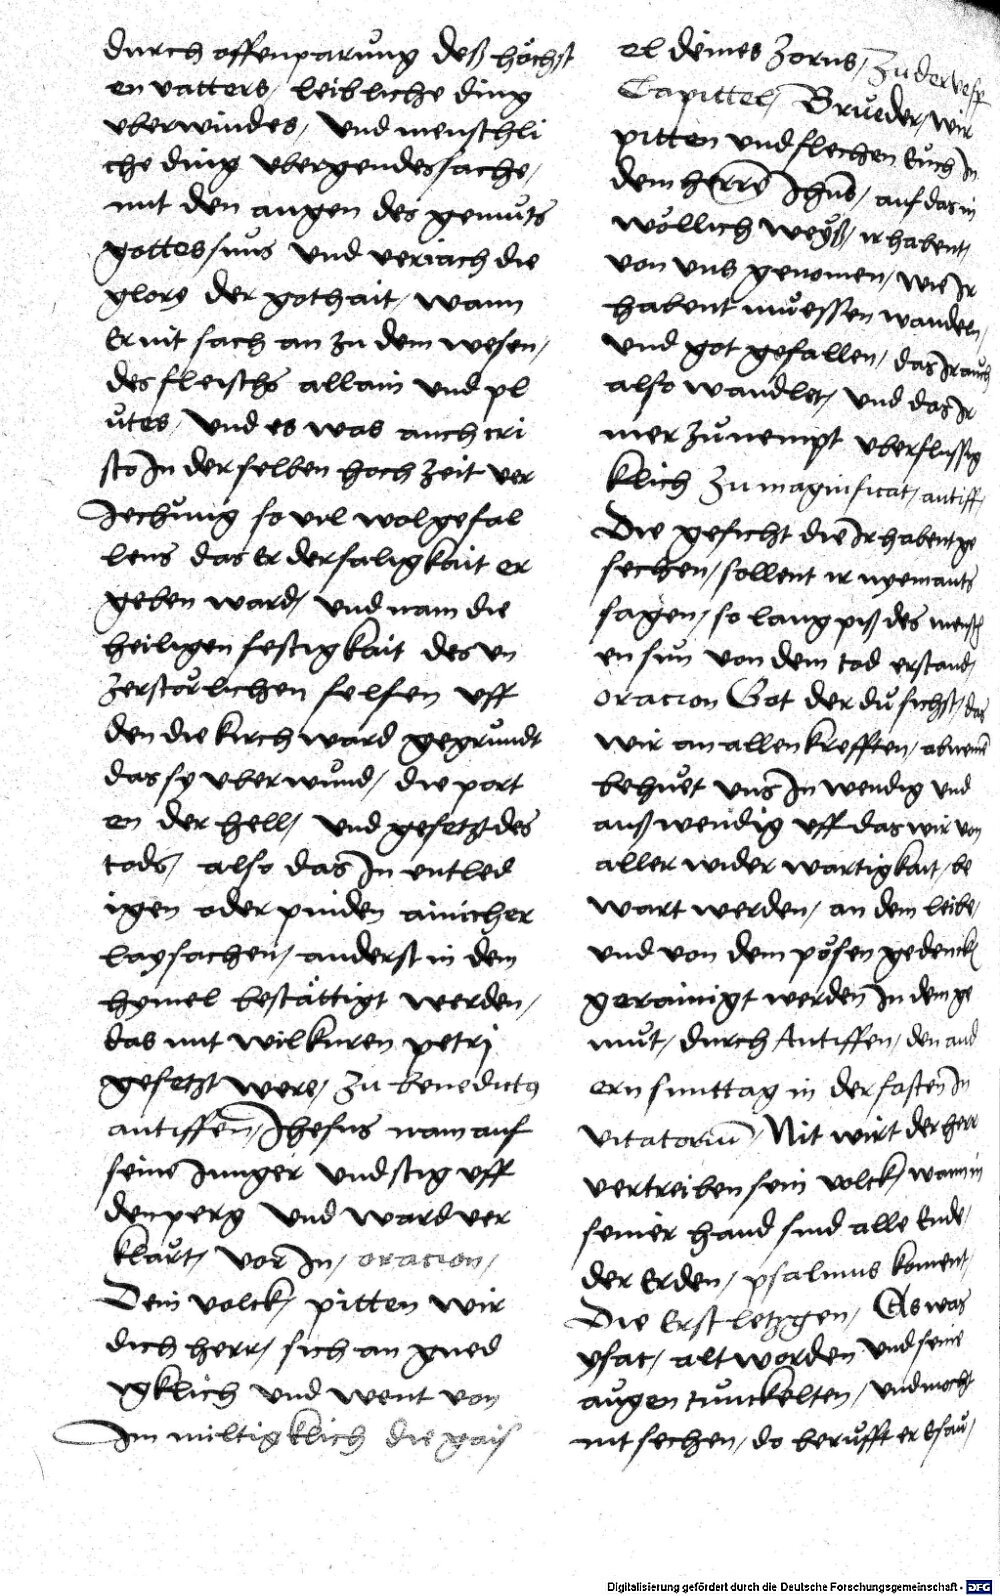 durch offenparung deß höchst
en vatters / leibliche ding
vberwindes / vnd menschli
che ding vbergendes sache /
mit den augen des gemuͤts
gottes suns vnd veriach die
glory der gothait / wann
Er nit sach an zu dem wesen /
des fleischs allain vnd pl
uͦtes / vnd es was auch cri
sto In der selben hochzeit ver
Iechung so vil wolgefal
lens das Er der saligkait er
geben ward / vnd nam die
heiligen festigkait des vn
zerstörlichen felsen vff
den die kirch ward gegrundt
das sy vber wund / die port
en der hell / vnd gesetzt des
tods / also das In entled
igen oder pinden ainicher
laysachen / anderst in dem
hymel bestättigt werden /
das mit wilkuren petrj
gesetzt were / zu benedictus
antiffen̄ / Ihesus nam auf
seine Iunger vnd stig vff
den perg vnd ward ver
klaͤrt / vor In / oracion /
Dein volck / pitten wir
dich herr / sich an gned
igklich vnd went von
Im miltigklich die gais
el deines zorns / Zu der vesp
Capittel / Brueder / wir
pitten vnd flechen Euch In
dem herrē Ihūs / auf das in
woͤllich weyß / ir habent /
von vns genomen / wie Ir
habent muͤessen wandeln /
vnd got gefallen / das Ir auch
also wandlet / vnd das Ir
mer zuͦ nempt vberflussig
klich Zu magnificat / antiff /
Die gesicht die Ir habent ge
sechen / sollent ir nyemants
sagen / so lang piß des mensch
en sun von dem tod erstand /
oracion Got der du sichst / das
wir an allen krefften / abnemē
behuͤet vns In wendig vnd
auß wendig vff das wir von
aller wider wartigkait / be
wart werden / an dem leibe /
vnd von dem poͤsen gedenck
gerainigt werden In dem ge
muͤt / durch Antiffen / den and
ern sunttag in der fasten In
vitatoriū / Nit wirt der herr
vertreiben sein volck / wann in
seiner hand sind alle Ende /
der Erden / psalmus koment /
Die Erst letzgen / Es was
ysac / alt worden vnd seine
augen tunckelten / vnd mocht
nit sechen / do berufft er Esau /
Digitalisierung gefördert durch die Deutsche Forschungsgemeinschaft - DFG